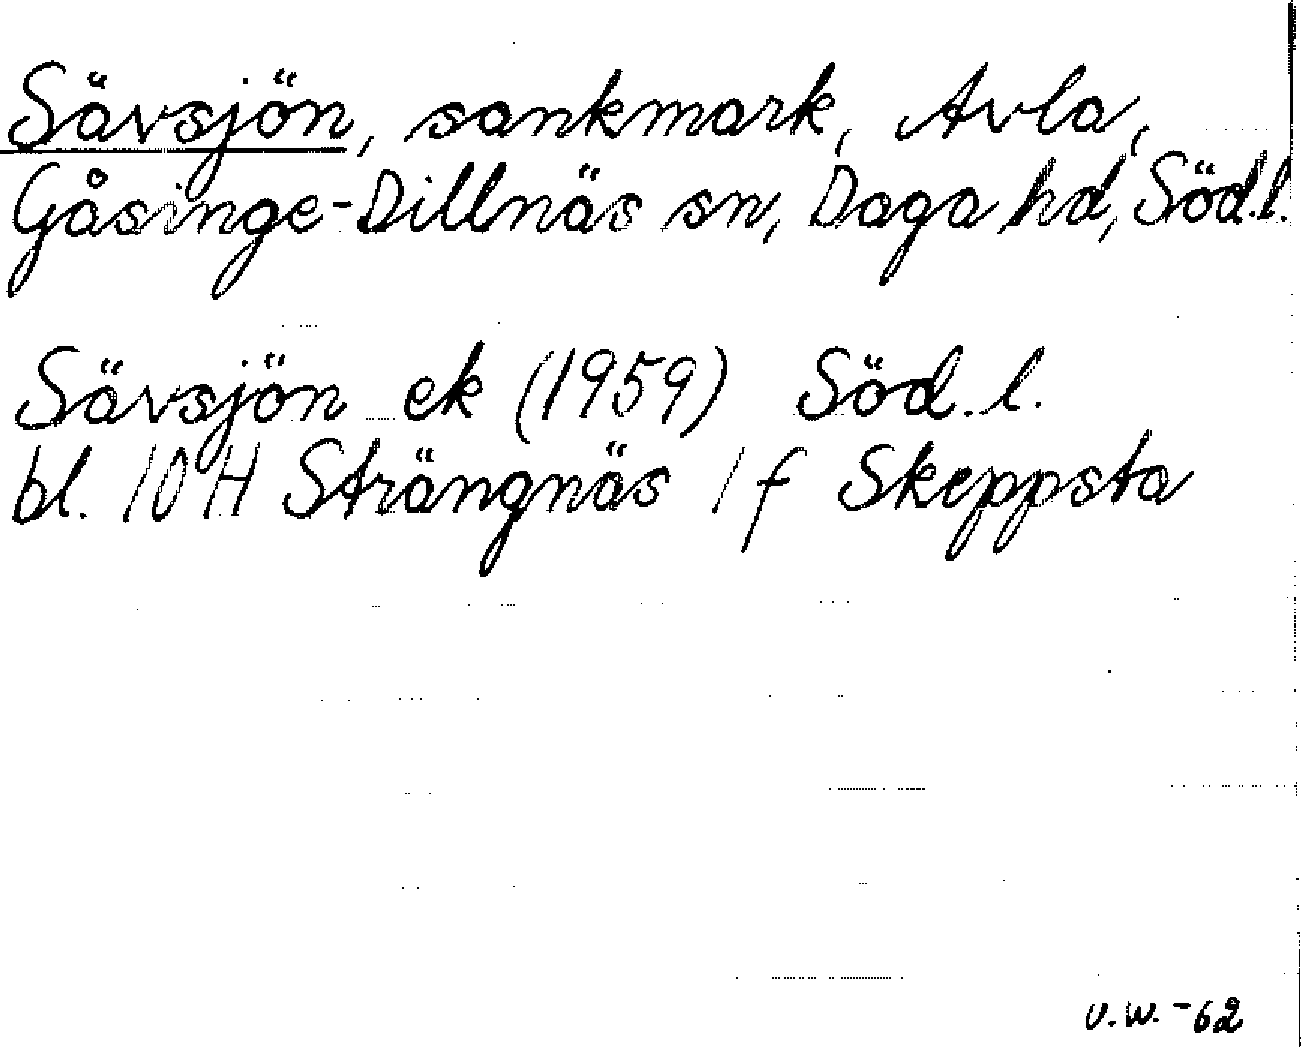 Sävsjön, sankmark, Avla,
Gåsinge-Dillnäs sn, Daga hd, Söd.l.
Sävsjön ek (1959) Söd.l.
bl. 10 H Strängnäs 1 f Skeppsta
U.W. -62